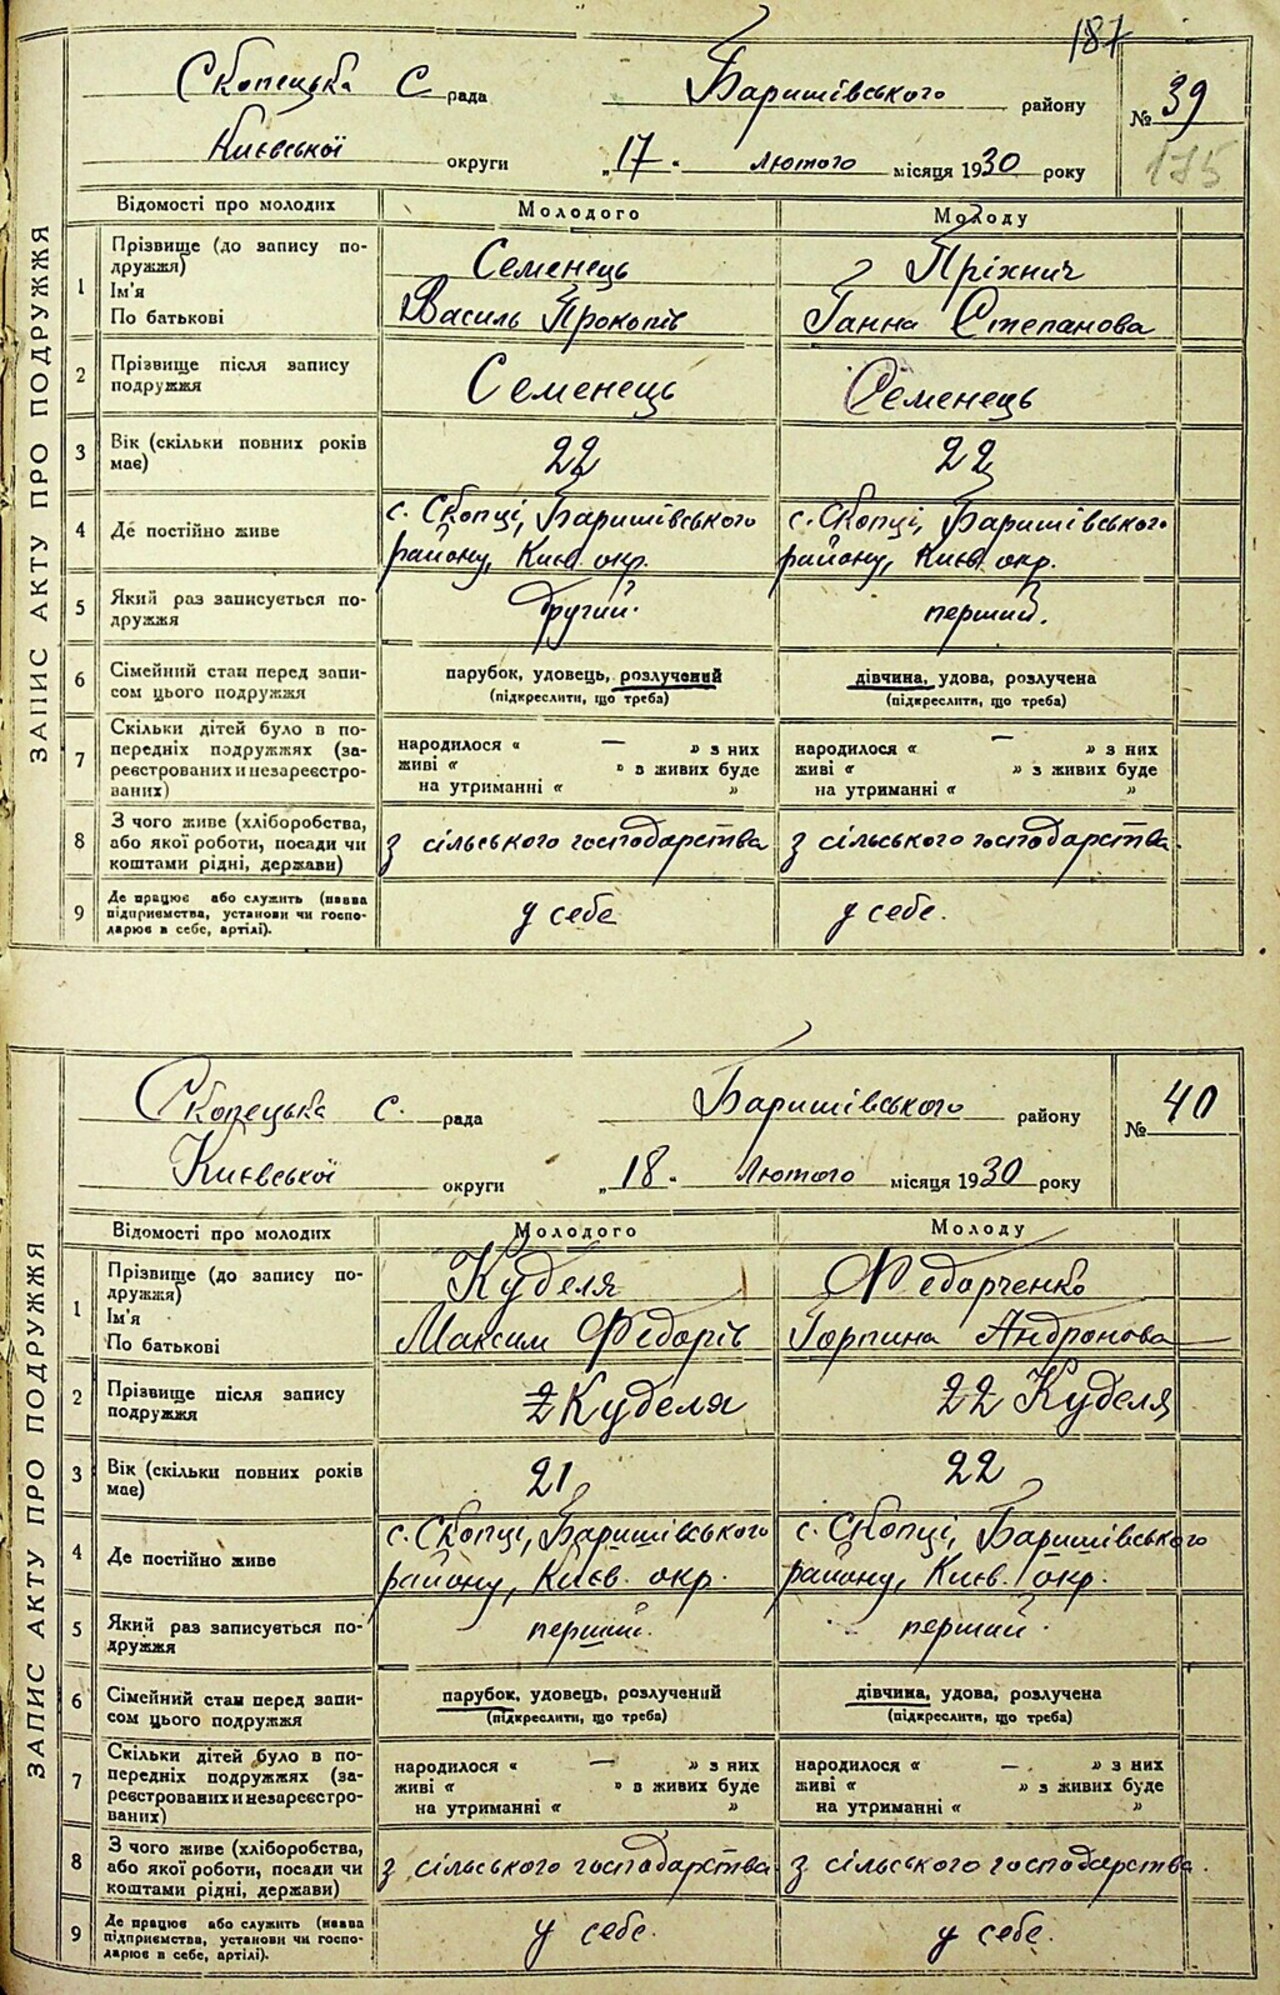 187
Скопецька С рада Баришівського району № 39
175
Київської округи „17" лютого місяця 1930 року
ЗАПИС АКТУ ПРО ПОДРУЖЖЯ
Відомості про молодих Молодого Молоду
1 Прізвище (до запису по-
дружжя) Семенець Пріхнич
Ім'я
По батькові Василь Прокопів Ганна Степанова
2 Прізвище після запису
подружжя Семенець Семенець
3 Вік (скільки повних років
має) 22 22
4 Де постійно живе с. Скопці, Баришівського с. Скопці, Баришівського
району, Києв. окр. району, Києв. окр.
5 Який раз записується по-
дружжя другий. перший.
6 Сімейний стан перед запи-
сом цього подружжя парубок, удовець, розлучений дівчина, удова, розлучена
(підкреслити, що треба) (підкреслити, що треба)
7 Скільки дітей було в по-
передніх подружжях (за-
реєстрованих и незареєстро-
ваних)
народилося « — » з них народилося « — » з них
живі « » в живих буде живі « » з живих буде
на утриманні « » на утриманні « »
8 З чого живе (хліборобства,
або якої роботи, посади чи
коштами рідні, держави) з сільського господарства з сільського господарства.
9 Де працює або служить (назва
підприємства, установи чи госпо-
дарює в себе, артілі). у себе у себе.
Скопецька с. рада Баришівського району № 40
Київської округи „18" лютого місяця 1930 року
ЗАПИС АКТУ ПРО ПОДРУЖЖЯ
Відомості про молодих Молодого Молоду
1 Прізвище (до запису по-
дружжя) Куделя Федорченко
Ім'я
По батькові Максим Федорів Горпина Андронова
2 Прізвище після запису
подружжя 2 Куделя 22 Куделя
3 Вік (скільки повних років
має) 21 22
4 Де постійно живе с. Скопці, Баришівського с. Скопці, Баришівського
району, Києв. окр. району, Києв. окр.
5 Який раз записується по-
дружжя перший. перший.
6 Сімейний стан перед запи-
сом цього подружжя парубок, удовець, розлучений дівчина, удова, розлучена
(підкреслити, що треба) (підкреслити, що треба)
7 Скільки дітей було в по-
передніх подружжях (за-
реєстрованих и незареєстро-
ваних)
народилося « — » з них народилося « — » з них
живі « » в живих буде живі « » з живих буде
на утриманні « » на утриманні « »
8 З чого живе (хліборобства,
або якої роботи, посади чи
коштами рідні, держави) з сільського господарства з сільського господарства.
9 Де працює або служить (назва
підприємства, установи чи госпо-
дарює в себе, артілі). у себе. у себе.